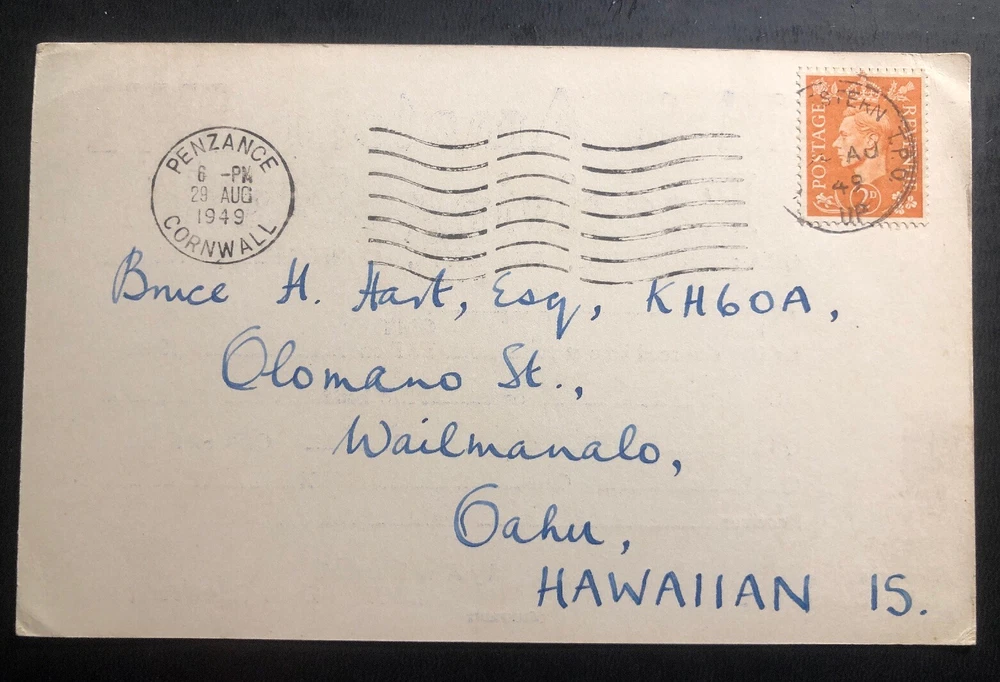 PENZANCE
6 - PM
29 AUG
1949
CORNWALL
POSTAGE
REVENUE
2D
STERN T.P.O.
AU
49
UP
Bruce H. Hart, Esq, KH6OA,
Olomano St.,
Wailmanalo,
Oahu,
HAWAIIAN IS.